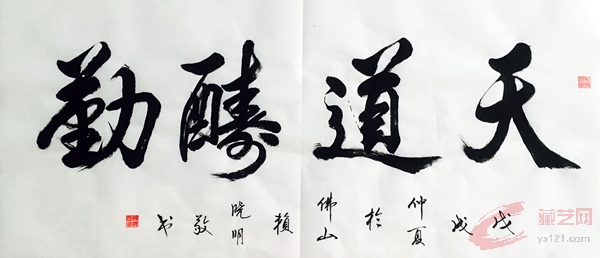 天道醻勤
戊戌仲夏於佛山賴晓明敬书
藏艺网
ys121.com